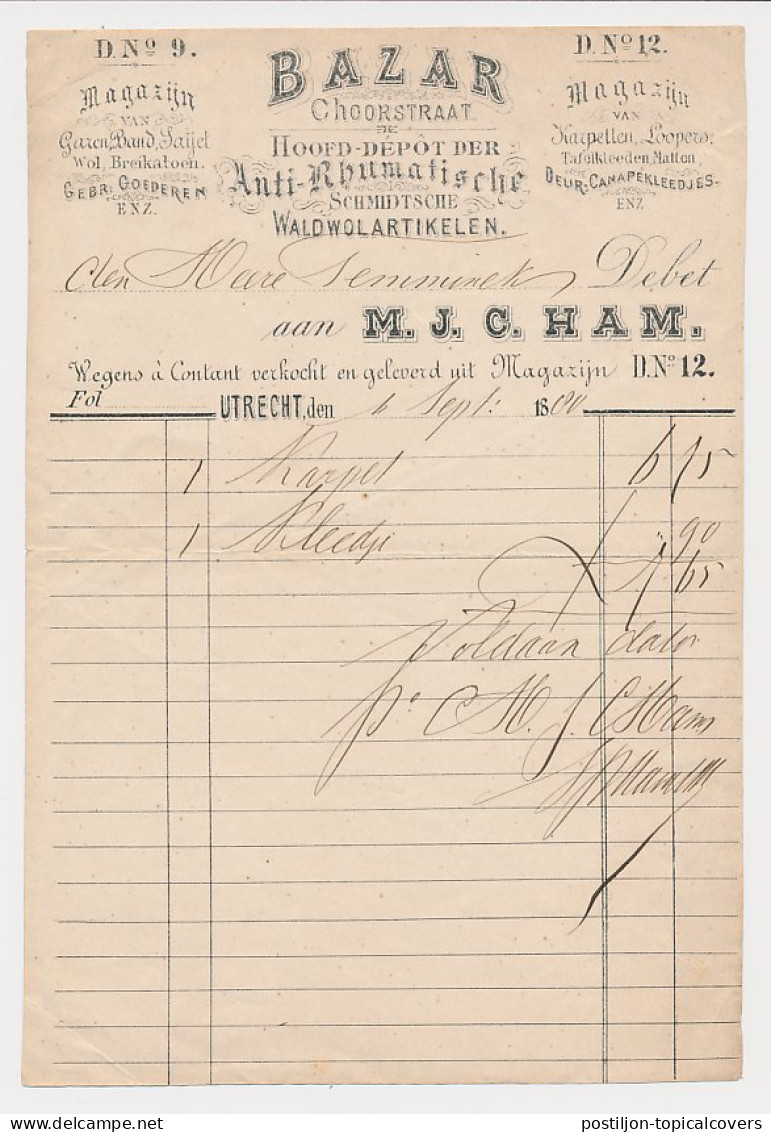 D. No 9.
Magazijn
VAN
Garen, Band, Saijet
Wol, Breikatoen.
GEBR: GOEDEREN
ENZ.
BAZAR
CHOORSTRAAT.
HOOFD-DÉPÔT DER
Anti-Rhumatische
SCHMIDTSCHE
WALDWOLARTIKELEN.
D. No 12.
Magazijn
VAN
Karpetten, Loopers,
Tafelkleeden, Matton,
DEUR: CANAPEKLEEDJES.
ENZ
den Heere Temminck Debet
aan M. J. C. HAM.
Wegens à Contant verkocht en geleverd uit Magazijn D. No 12.
Fol UTRECHT, den 6 Sept: 1880
1 Karpet 6 75
1 Kleedje " 90
7 65
Voldaan dato
po M. J. C Ham
postiljon-topicalcovers